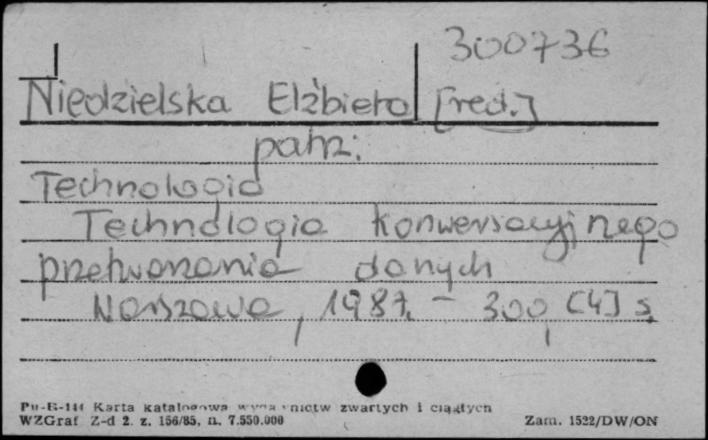 300736
Niedzielska Elżbieta [red.]
patrz:
Technologia
Technologia konwersacyjnego
przetwarzania danych
Warszawa, 1987. - 300, [4] s.
Pu-B-144 Karta katalogowa wydawnictw zwartych i ciągłych
WZGraf Z-d 2. z. 156/85, n. 7.550.000 Zam. 1522/DW/ON